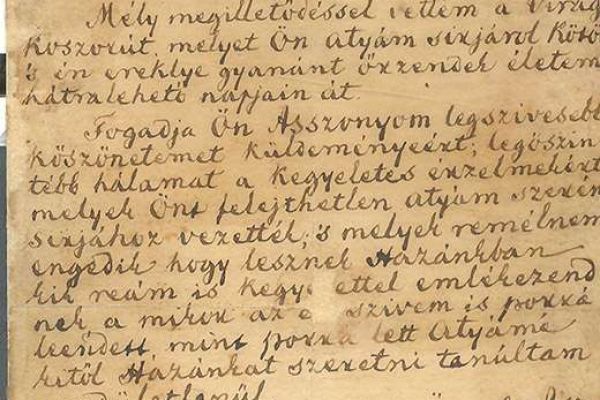 Mély megilletődéssel vettem a virág
koszorút, melyet Ön atyám sirjáról kötö
's én ereklye gyanánt őrzendek életem
hátralehető napjain át.
Fogadja Ön Asszonyom legszivesebb
köszönetemet küldeményeért; legöszin
tébb hálámat a kegyeletes érzelmekért
melyek Önt felejthetlen atyám szerén
sirjához vezették; 's melyek remélnem
engedik hogy lesznek Hazánkban
kik reám is kegye ettel emlékezend
nek a mikor az e szivem is porrá
leendett mint porrá lett Atyámé
kitől Hazánkat szeretni tanúltam